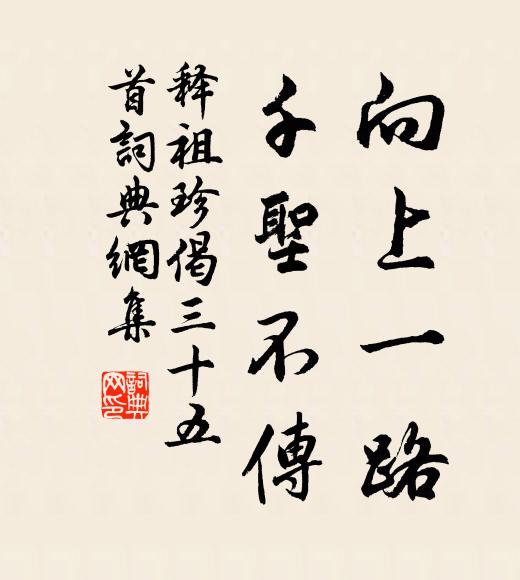 向上一路
千聖不傳
释祖珍偈三十五
首詞典網集
詞典
网印